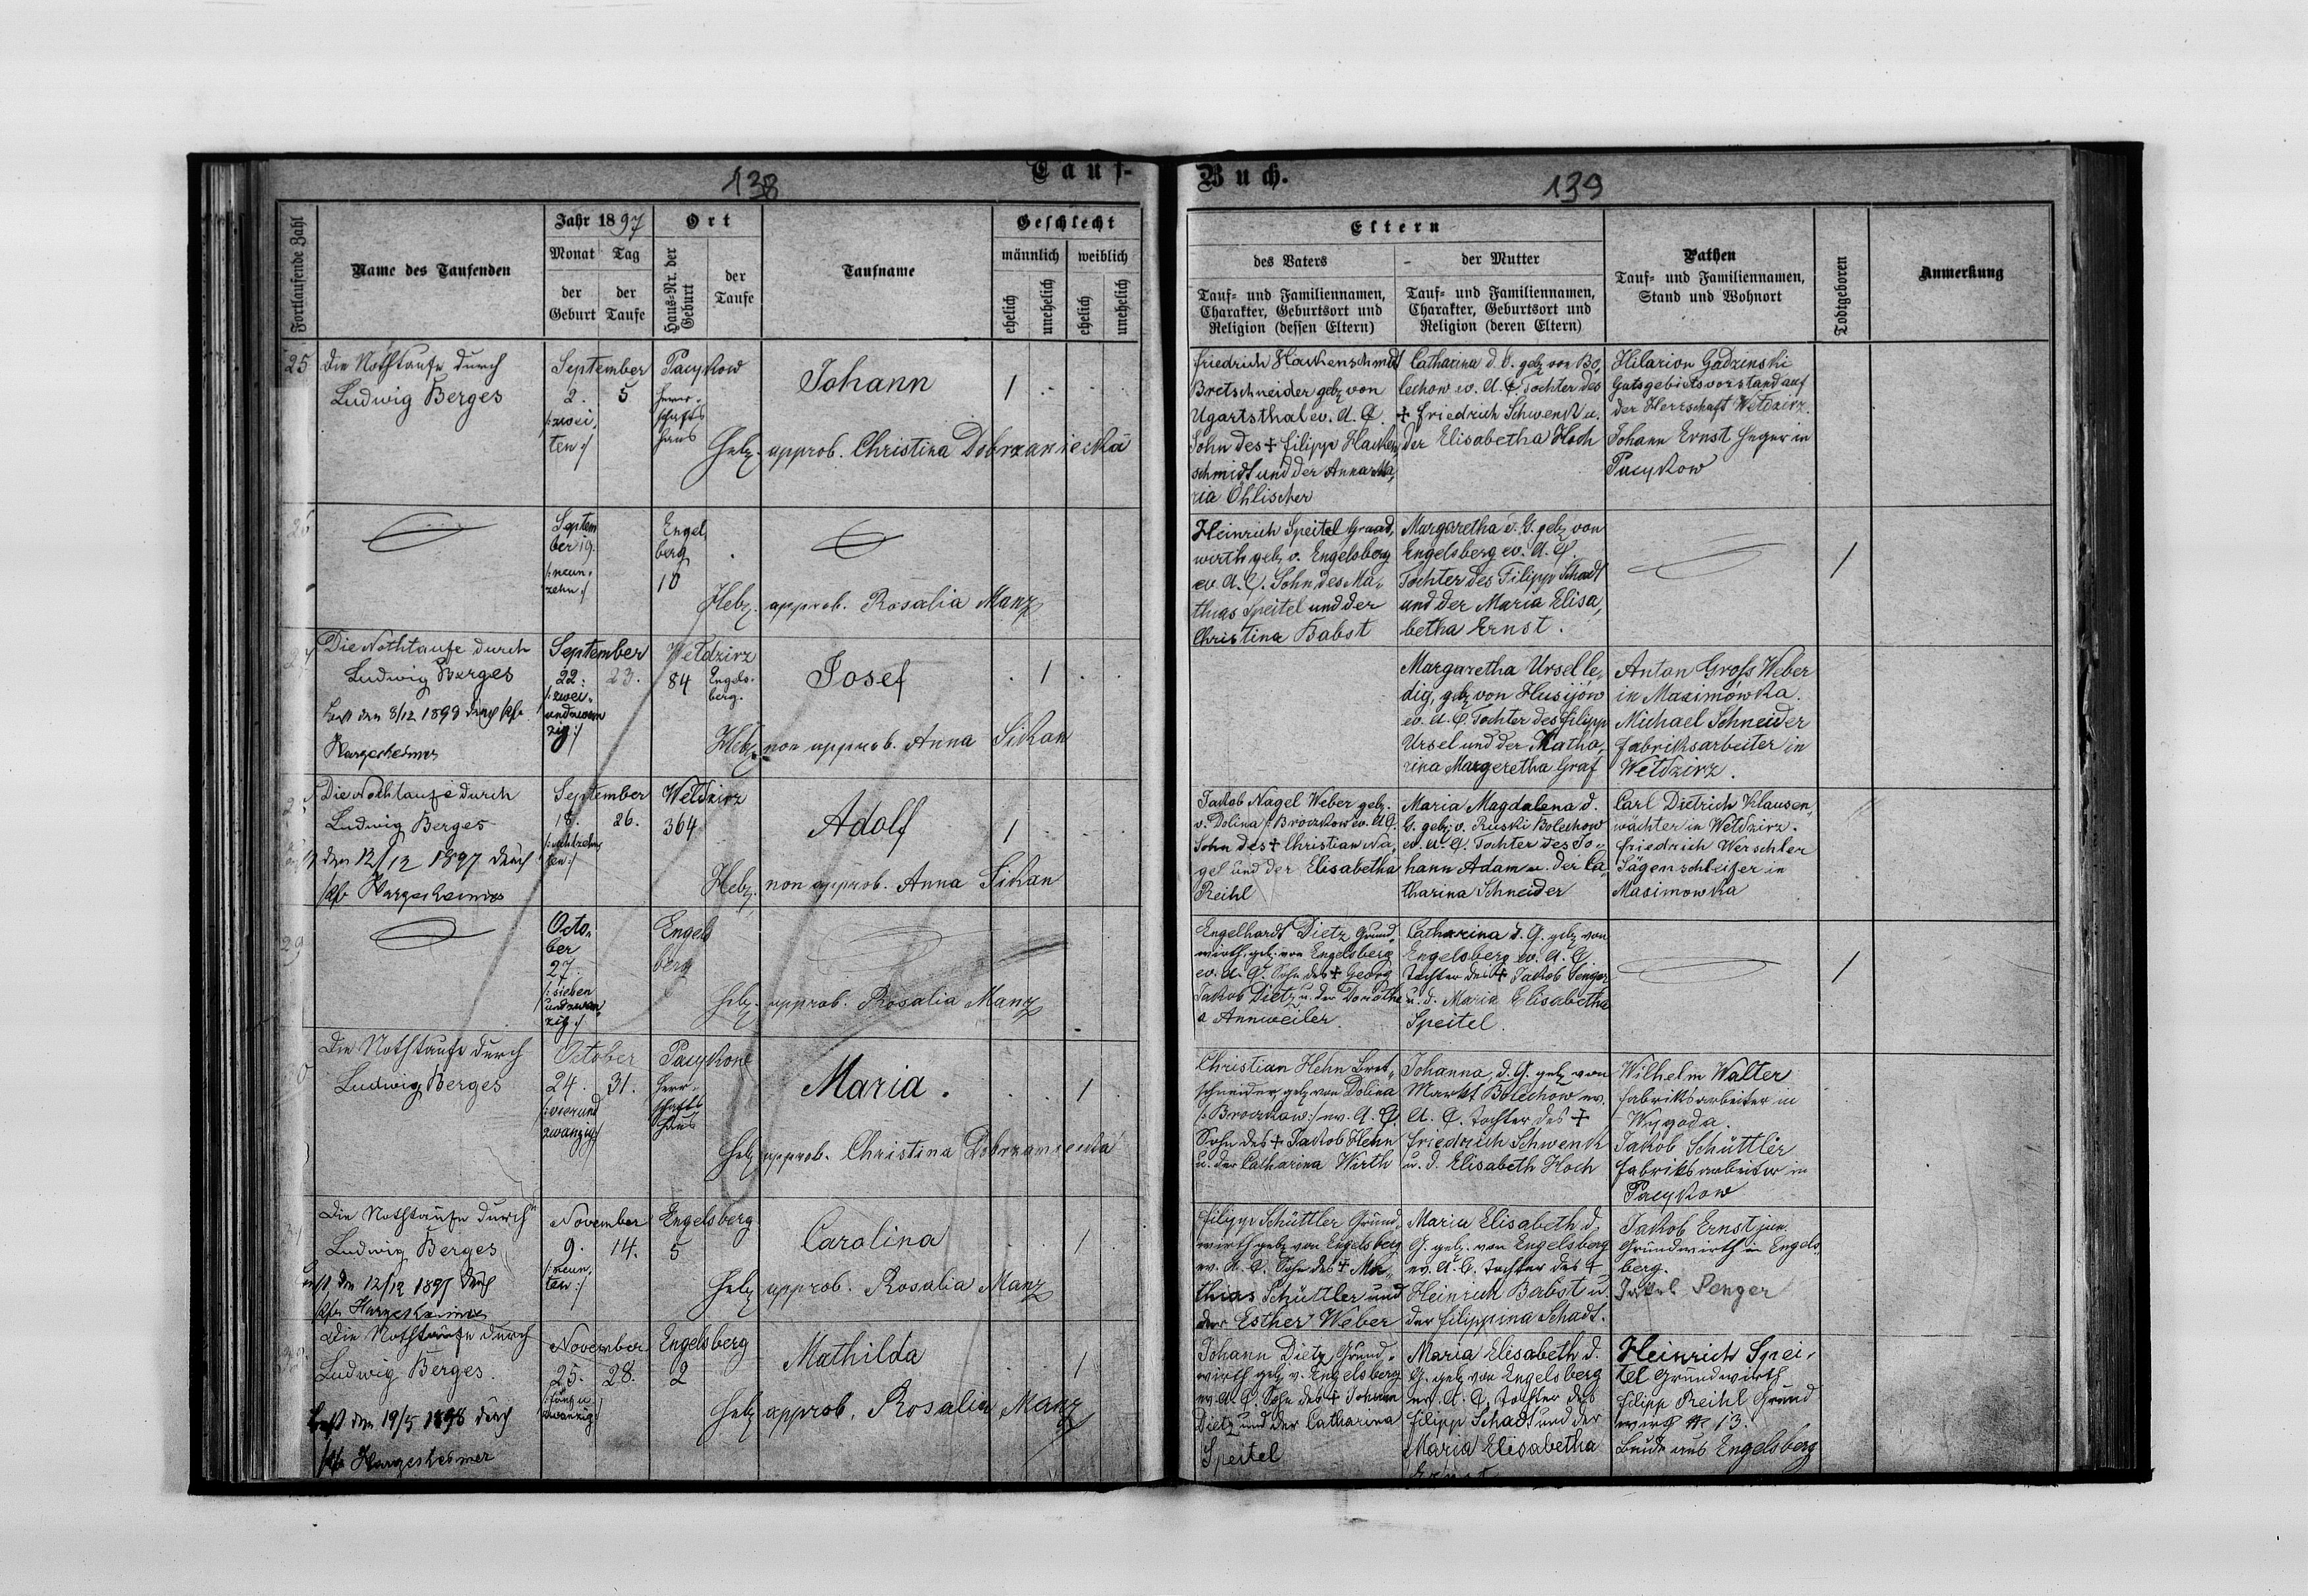 138
Tauf-
Fortlaufende Zahl
Name des Taufenden
Jahr 1897
Monat
Tag
der Geburt
der Taufe
Ort
Haus-Nr. der Geburt
der Taufe
Taufname
Geschlecht
männlich
weiblich
ehelich
unehelich
ehelich
unehelich
25
Die Nothtaufe durch
Ludwig Berges
September
2. 5
/:zwei,
ten:/
Pacykow
Herr-
schafts
haus
Johann
1
Heb. approb. Christina Dobrzaniecka
26
Septem
ber 19.
/:neun,
zehn:/
Engels
berg
10
Heb. approb. Rosalia Manz
27
Die Nothtaufe durch
Ludwig Berges
best. den 8/12 1899 durch Pfr.
Hargesheimer
September
22. 23.
/:zwei-
undzwan
zig:/
Weldzirz
84 Engels-
berg.
Josef
1
Heb. non approb. Anna Sikan
28
Die Nothtaufe durch
Ludwig Berges
den 12/12 1897 durch
Pfr. Hargesheimer
September
18. 26.
/:achtzehn
ten:/
Weldzirz
364
Adolf
1
Heb. non approb. Anna Sikan
29
Octo-
ber
27.
/:sieben
undzwan,
zig:/
Engels
berg
Heb. approb. Rosalia Manz
30
Die Nothtaufe durch
Ludwig Berges
October
24. 31.
/:vierund
zwanzig:/
Pacykow
Herr-
schafts
haus
Maria.
1
Heb. approb. Christina Dobrzaniecka
31
Die Nothtaufe durch
Ludwig Berges
best. den 12/12 1897 durch
Pfr. Hargesheimer
November
9. 14.
/:neun,
ten:/
Engelsberg
5
Carolina
1
Heb. approb. Rosalia Manz
Die Nothtaufe durch
Ludwig Berges.
best. den 19/5 1898 durch
Pfr. Hargesheimer
November
25. 28.
/:fünf u.
zwanzig:/
Engelsberg
2
Mathilda
1
Heb. approb. Rosalia Manz
Buch.
139
Eltern
des Vaters
Tauf- und Familiennamen,
Charakter, Geburtsort und
Religion (dessen Eltern)
der Mutter
Tauf- und Familiennamen,
Charakter, Geburtsort und
Religion (deren Eltern)
Pathen
Tauf- und Familiennamen,
Stand und Wohnort
Todtgeboren
Anmerkung
Friedrich Hackenschmidt
Bretschneider geb. von
Ugartsthal ev. A. C.
Sohn des + Filipp Hacken,
schmidt und der Anna Ma,
ria Öhlischer
Catharina d. G. geb. von Bo,
lechow ev. A. C. Tochter des
+ Friedrich Schwenk u.
der Elisabetha Hoch
Hilarion Gadzinski
Gutsgebietsvorstand auf
der Herrschaft Weldzirz.
Johann Ernst Heger in
Pacykow
Heinrich Speitel Grund,
wirth geb. v. Engelsberg
ev. A. C. Sohn des Ma,
thias Speitel und der
Christina Babst
Margaretha d. G. geb. von
Engelsberg ev. A. C.
Tochter des Filipp Schadt
und der Maria Elisa,
betha Ernst.
1
Margaretha Ursel le,
dig, geb. von Husijów
ev. A. C. Tochter des Filipp
Ursel und der Katha,
rina Margeretha Graf
Anton Gross Weber
in Maximówka.
Michael Schneider
Fabriksarbeiter in
Weldzirz.
Jakob Nagel Weber geb.
v. Dolina /:Broczkow ev. A. C.
Sohn des + Christian Na,
gel und der Elisabetha
Reihl
Maria Magdalena d.
G. geb. v. Ruski Bolechow
ev. A. C. Tochter des Jo-
hann Adam u. der Ca,
tharina Schneider
Carl Dietrich Klausen,
wächter in Weldzirz.
Friedrich Werschler
Sägenschleifer in
Maximowka
Engelhardt Dietz Grund,
wirth geb. von Engelsberg
ev. A. C. Sohn des + Georg
Jakob Dietz u. der Dorothe
a Annweiler.
Catharina d. G. geb. von
Engelsberg ev. A. C.
Tochter des + Jakob Senger
u. d. Maria Elisabetha
Speitel.
1
Christian Hehn Bret,
schneider, geb. von Dolina
/:Broczkow:/ ev. A. C.
Sohn des + Jakob Hehn
u. der Catharina Wirth
Johanna d. G. geb. von
Markt Bolechow ev.
A. C. Tochter des +
Friedrich Schwenk
u. d. Elisabeth Hoch
Wilhelm Walter
Fabriksarbeiter in
Wygoda.
Jakob Schüttler
Fabriksarbeiter in
Pacykow
Filipp Schüttler Grund,
wirth geb. von Engelsberg
ev. A. C. Sohn des + Ma,
thias Schüttler und
der Esther Weber
Maria Elisabeth d.
G. geb. von Engelsberg
ev. A. C. Tochter des +
Heinrich Berbst u.
der Filippina Schadt.
Jakob Ernst jun.
Grundwirth in Engels
berg.
Jakob Senger
Johann Dietz Grund-
wirth geb. v. Engelsberg
ev. A. C. Sohn des + Johann
Dietz und der Catharina
Speitel
Maria Elisabeth d.
G. geb. von Engelsberg
ev. A. C. Tochter des
Filipp Schadt und der
Maria Elisabetha
Ernst
Heinrich Spei,
tel Grundwirth
Filipp Reihl Grund
wirth № 13.
Beide aus Engelsberg